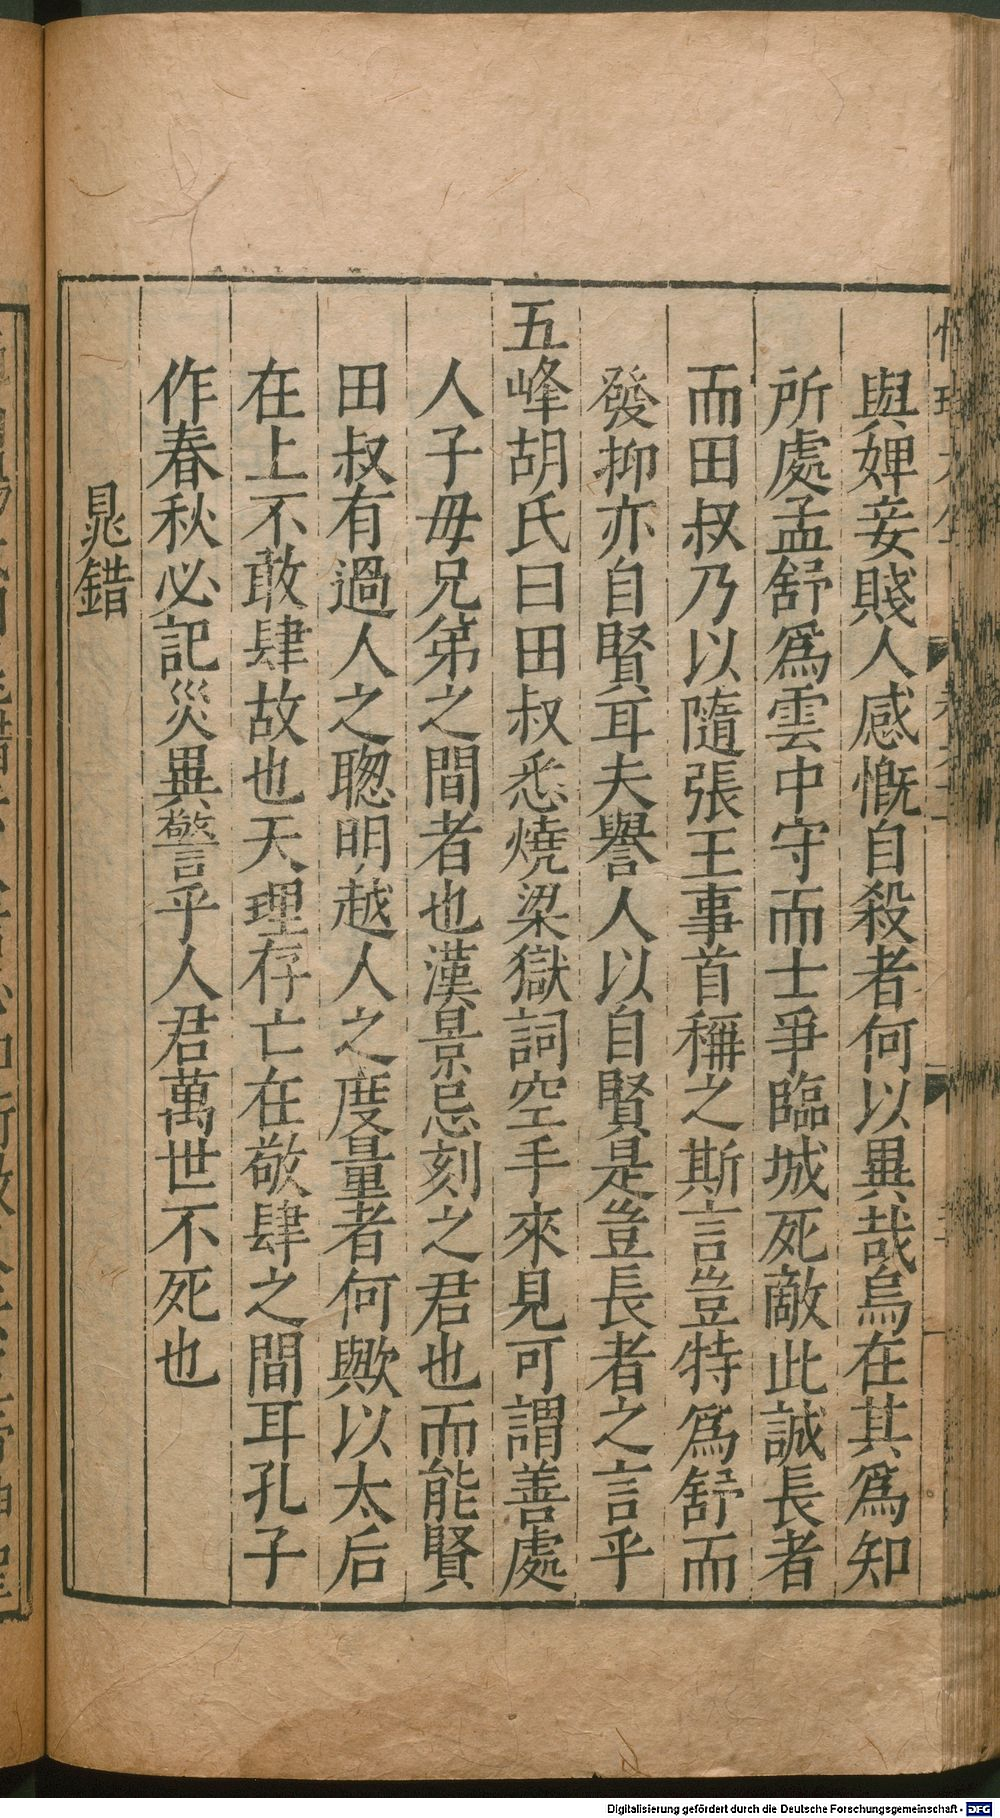 與婢妾賤人感慨自殺者何以異哉烏在其爲知
所處孟舒爲雲中守而士爭臨城死敵此誠長者
而田叔乃以隨張王事首稱之斯言豈特爲舒而
發抑亦自賢耳夫譽人以自賢是豈長者之言乎
五峰胡氏曰田叔悉燒梁獄詞空手來見可謂善處
人子毋兄弟之間者也漢景忌刻之君也而能賢
田叔有過人之聰明越人之度量者何歟以太后
在上不敢肆故也天理存亡在敬肆之間耳孔子
作春秋必記災異警乎人君萬世不死也
晁錯
Digitalisierung gefördert durch die Deutsche Forschungsgemeinschaft - DFG